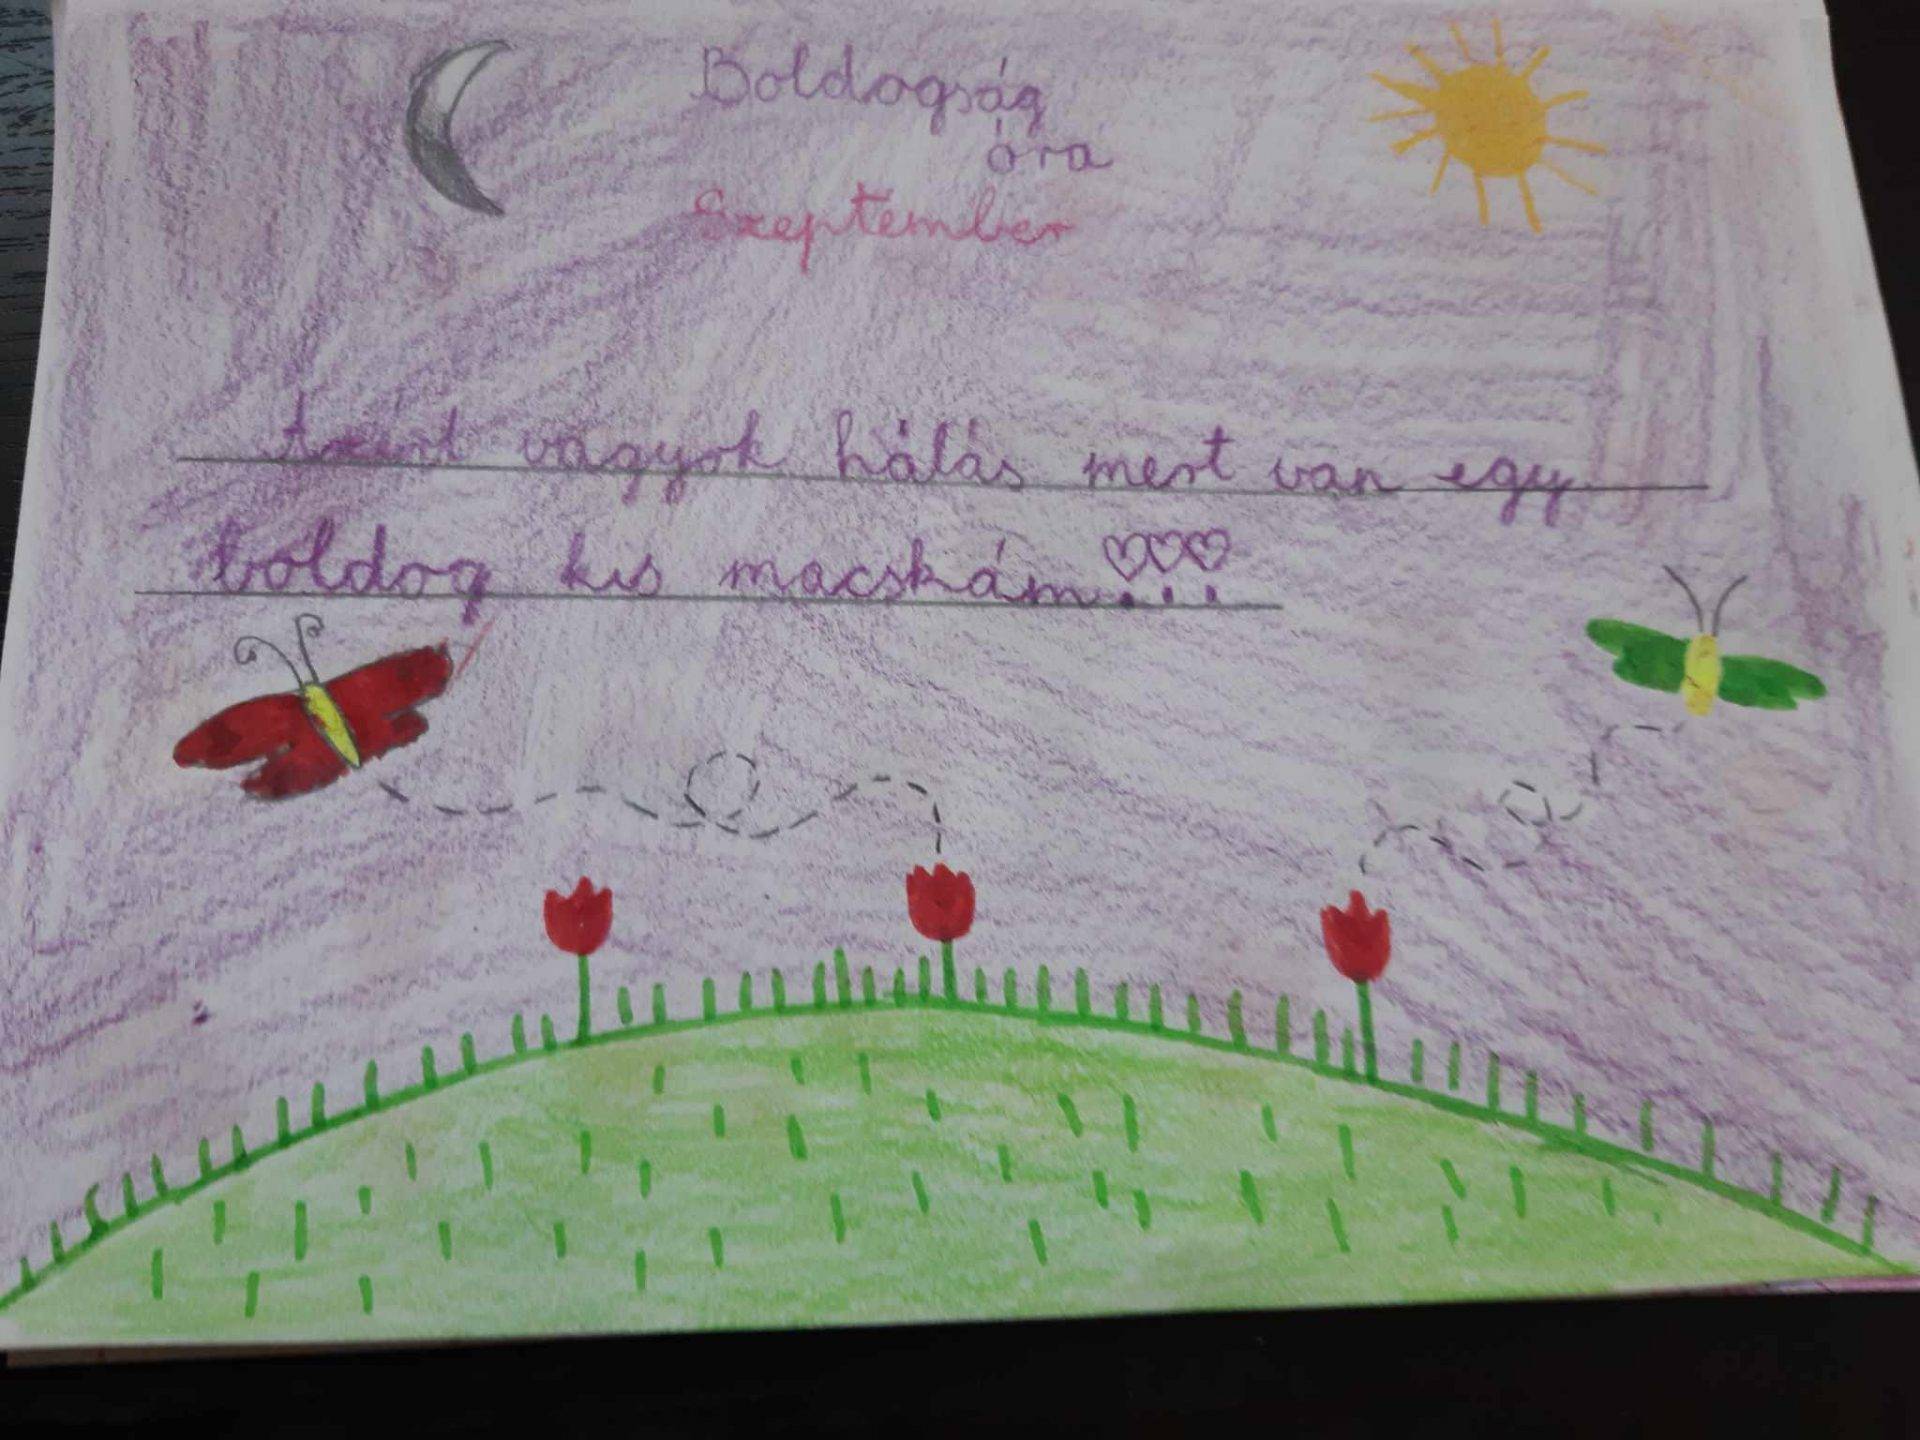 Boldogság
óra
Szeptember
Azért vagyok hálás mert van egy
boldog kis macskám...